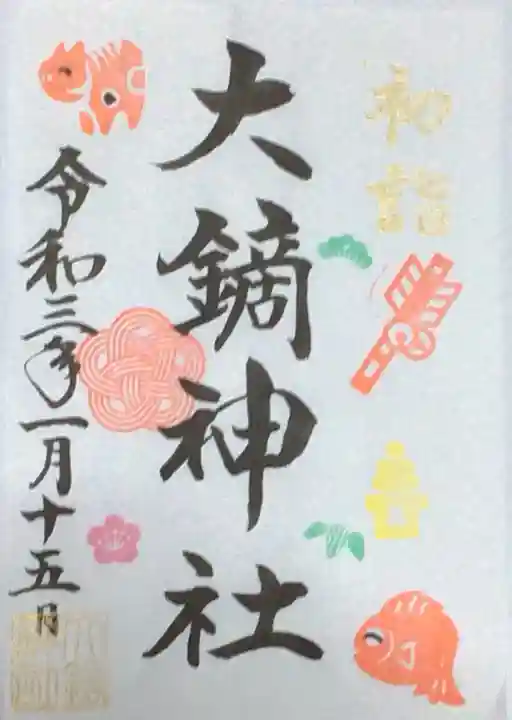 初詣
大鏑神社
令和三年一月十五日